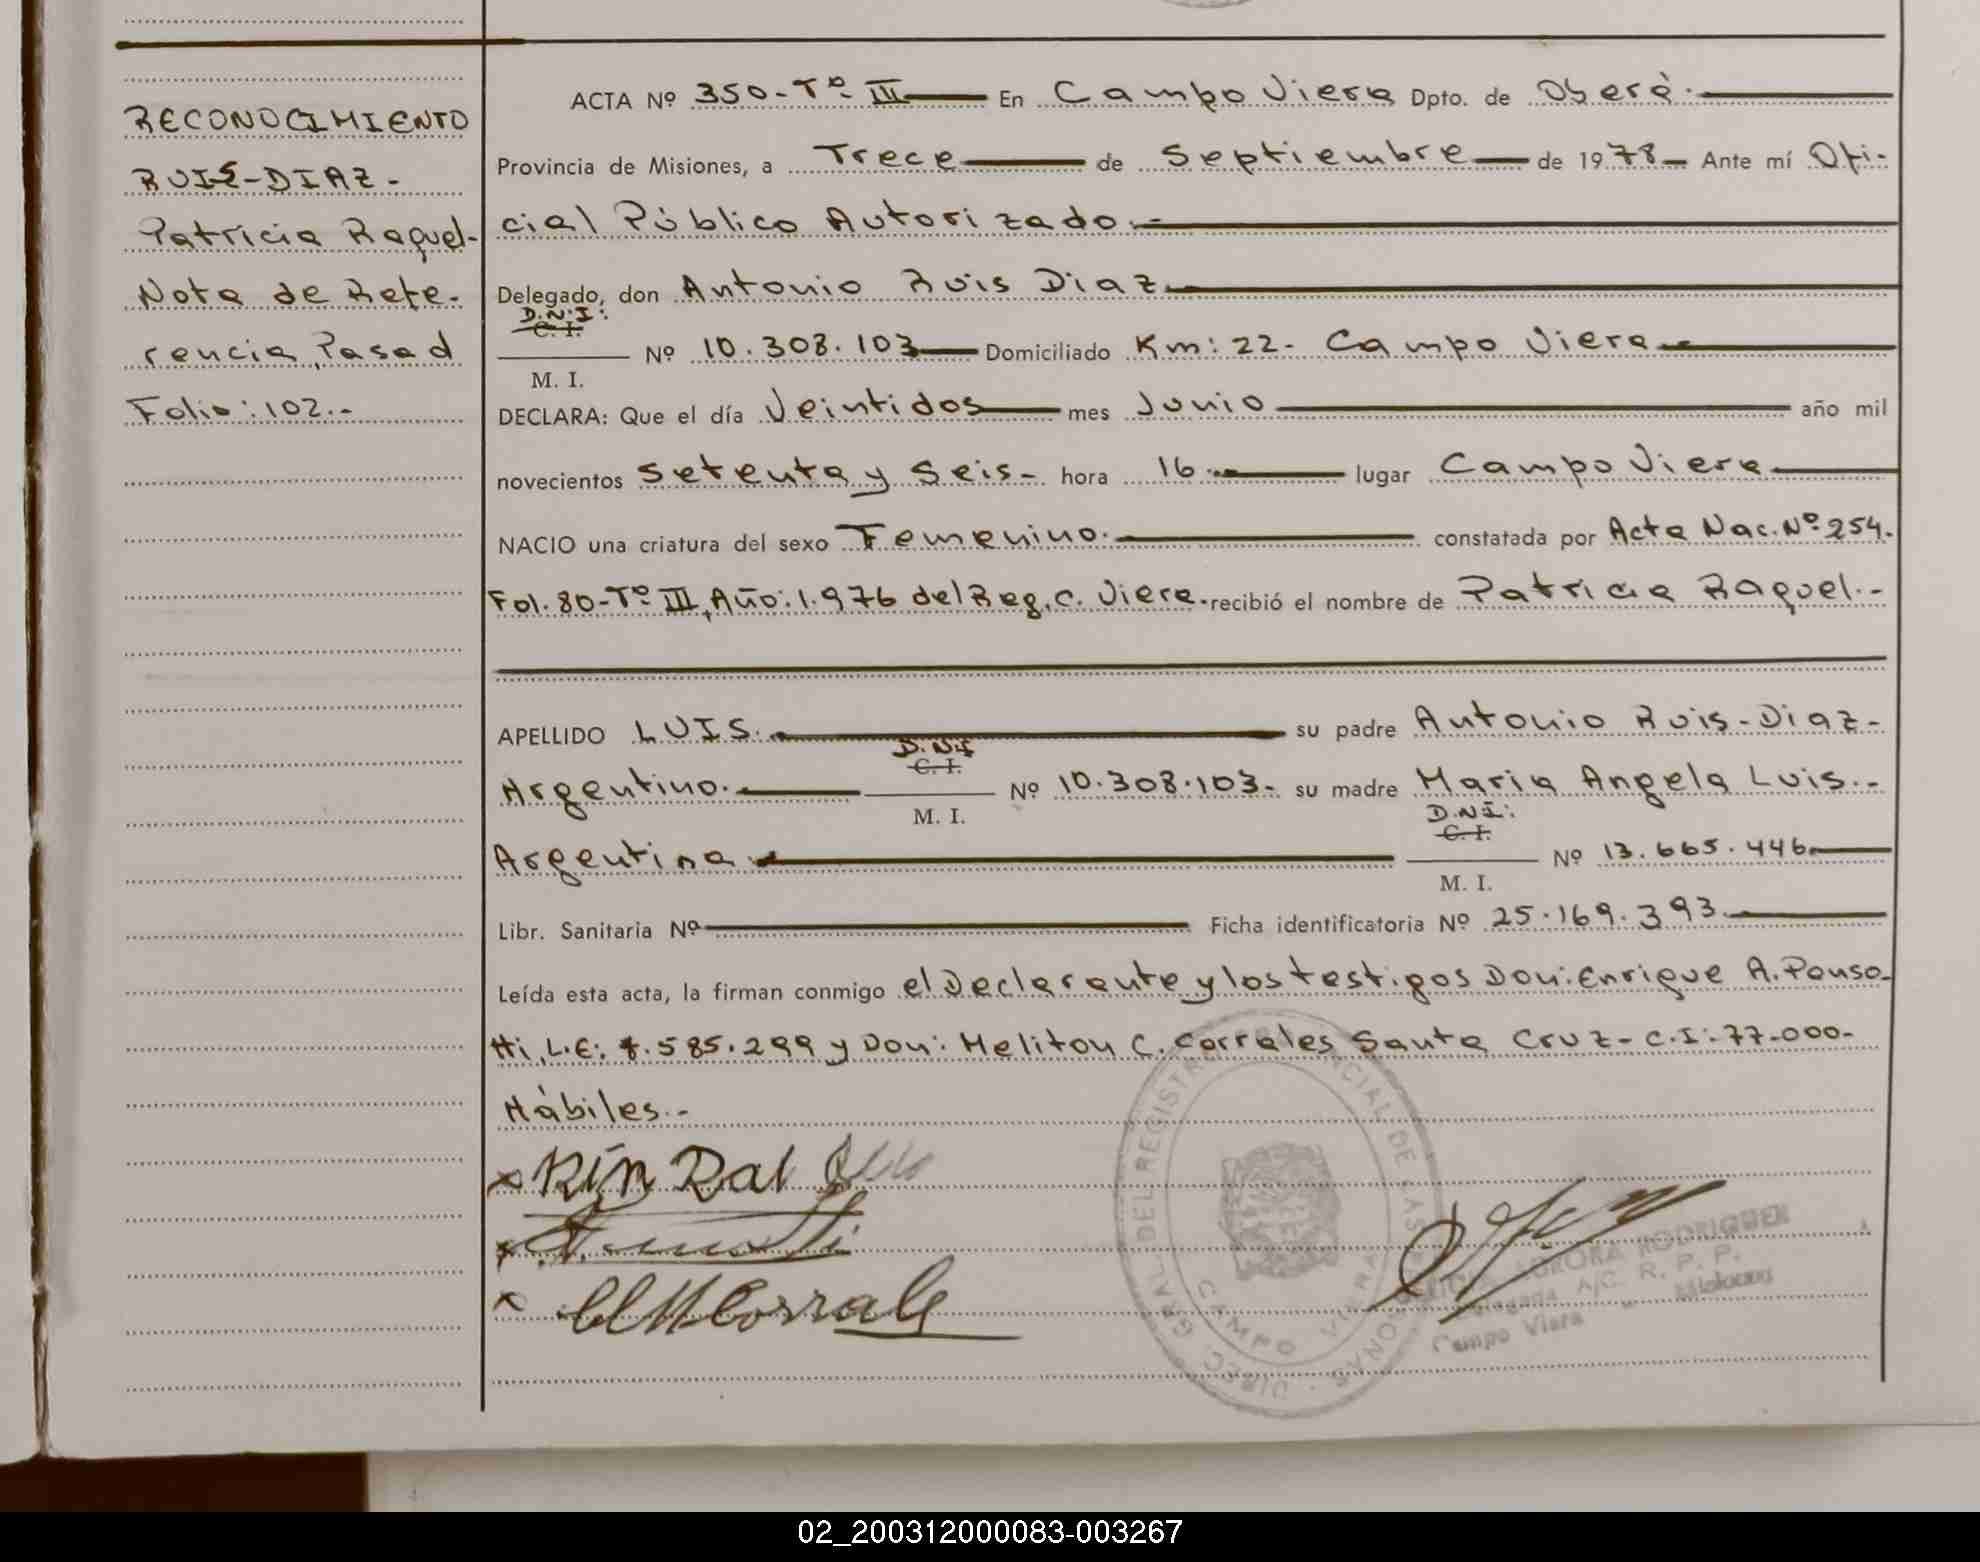 RECONOCIMIENTO
RUIS-DIAZ-
Patricia Raquel-
Nota de Refe-
rencia, Pasad
Folio: 102.-
ACTA Nº 350-Tº- III En Campo Viera Dpto. de Oberà.
Provincia de Misiones, a Trece de Septiembre de 1978 Ante mí Ofi-
cial Público Autorizado.-
Delegado, don Antonio Ruis Diaz
D.N.I:
C. I.
M. I.
Nº 10.308.103 Domiciliado Km: 22- Campo Viera
DECLARA: Que el día Veintidos mes Junio año mil
novecientos Setenta y Seis- hora 16.- lugar Campo Viera
NACIO una criatura del sexo Femenino. constatada por Acta Nac. Nº 254.
Fol. 80-Tº III, Año: 1.976 del Reg. C. Viera. recibió el nombre de Patricia Raquel.-
APELLIDO LUIS. su padre Antonio Ruis-Diaz-
D.N.I
C. I.
Argentino. M. I. Nº 10.308.103- su madre Maria Angela Luis.-
D.N.I:
C. I.
Argentina. M. I. Nº 13.665.446
Libr. Sanitaria Nº Ficha identificatoria Nº 25.169.393
Leída esta acta, la firman conmigo el Declarante y los testigos Don: Enrique A. Ponso-
tti, L.E: 7.585.299 y Don: Meliton C. Corrales Santa Cruz- C.I: 77.000-
Hàbiles.-
DIREC. GRAL. DEL REGISTRO PROVINCIAL DE LAS PERSONAS
CAMPO VIERA
AURORA RODRIGUEZ
Delegada A/C. R. P. P.
Campo Viera - Misiones
02_200312000083-003267